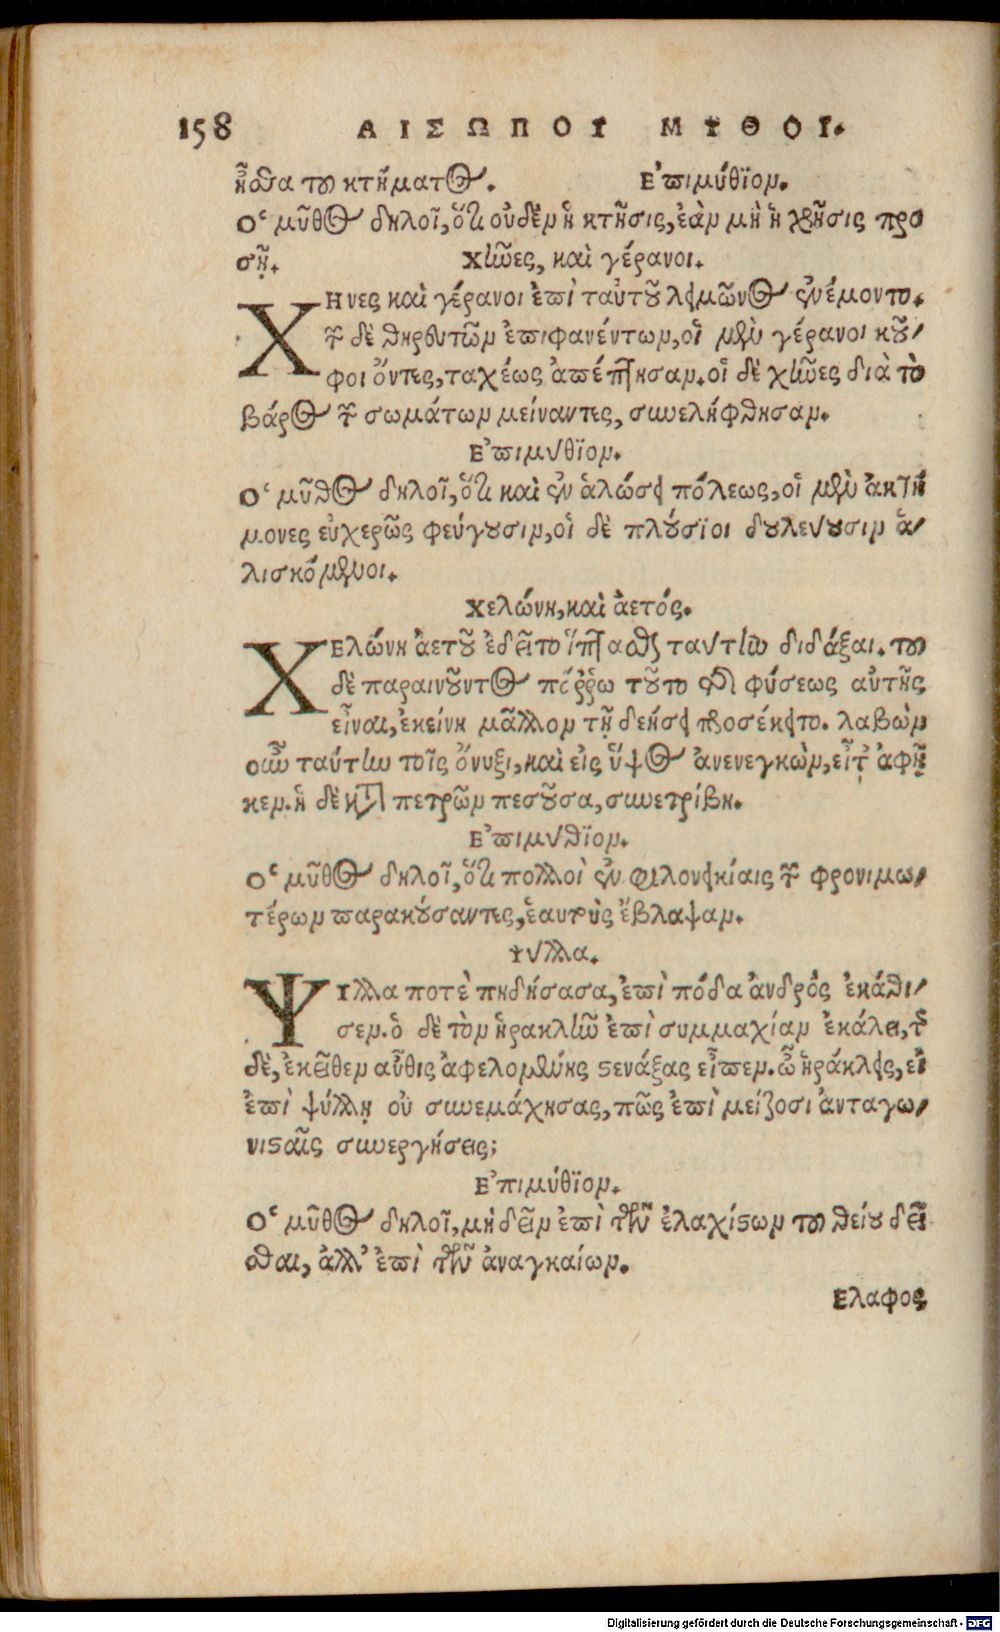 158 ΑΙΣΩΠΟΥ ΜΥΘΟΙ.
ᾖσθα τοῦ κτήματος. Ἐπιμύθϊον.
Ὁ μῦθος δηλοῖ, ὅτι οὐδὲν ἡ κτῆσις, ἐὰν μὴ ἡ χρῆσις προ
σῇ. Χῆνες, καὶ γέρανοι.
ΧΗνες καὶ γέρανοι ἐπὶ ταὐτοῦ λειμῶνος ἐνέμοντο.
τῶν δὲ θηρευτῶν ἐπιφανέντων, οἱ μὲν γέρανοι κοῦ/
φοι ὄντες, ταχέως ἀπέπτησαν. οἱ δὲ χῆνες διὰ τὸ
βάρος τῶν σωμάτων μείναντες, συνελήφθησαν.
Ἐπιμύθϊον.
Ὁ μῦθος δηλοῖ, ὅτι καὶ ἐν ἁλώσει πόλεως, οἱ μὲν ἀκτή
μονες εὐχερῶς φεύγουσιν, οἱ δὲ πλούσϊοι δουλεύουσιν ἁ/
λισκόμενοι.
Χελώνη, καὶ ἀετός.
ΧΕλώνη ἀετοῦ ἐδεῖτο ἵπτασθαι ταύτην διδάξαι. τοῦ
δὲ παραινοῦντος πόρρω τοῦτο τῆς φύσεως αὐτῆς
εἶναι, ἐκείνη μᾶλλον τῇ δεήσει προσέκειτο. λαβὼν
οὖν ταύτην τοῖς ὄνυξι, καὶ εἰς ὕψος ἀνενεγκὼν, εἶτ' ἀφῆ
κεν. ἡ δὲ κατὰ πετρῶν πεσοῦσα, συνετρίβη.
Ἐπιμύθϊον.
Ὁ μῦθος δηλοῖ, ὅτι πολλοὶ ἐν φιλονεικίαις τῶν φρονιμω/
τέρων παρακούσαντες, ἑαυτοὺς ἔβλαψαν.
Ψύλλα.
ΨΥλλα ποτὲ πηδήσασα, ἐπὶ πόδα ἀνδρὸς ἐκάθι/
σεν. ὁ δὲ τὸν ἡρακλῆν ἐπὶ συμμαχίαν ἐκάλει, τῆς
δὲ, ἐκεῖθεν αὖθις ἀφελομένης στενάξας εἶπεν. ὦ ἡράκλεις, εἰ
ἐπὶ ψύλλῃ οὐ συνεμάχησας, πῶς ἐπὶ μείζοσι ἀνταγω/
νισταῖς συνεργήσεις;
Ἐπιμύθϊον.
Ὁ μῦθος δηλοῖ, μὴ δεῖν ἐπὶ τῶν ἐλαχίστων τοῦ θείου δεῖ
σθαι, ἀλλ' ἐπὶ τῶν ἀναγκαίων.
Ελαφος
Digitalisierung gefördert durch die Deutsche Forschungsgemeinschaft - DFG